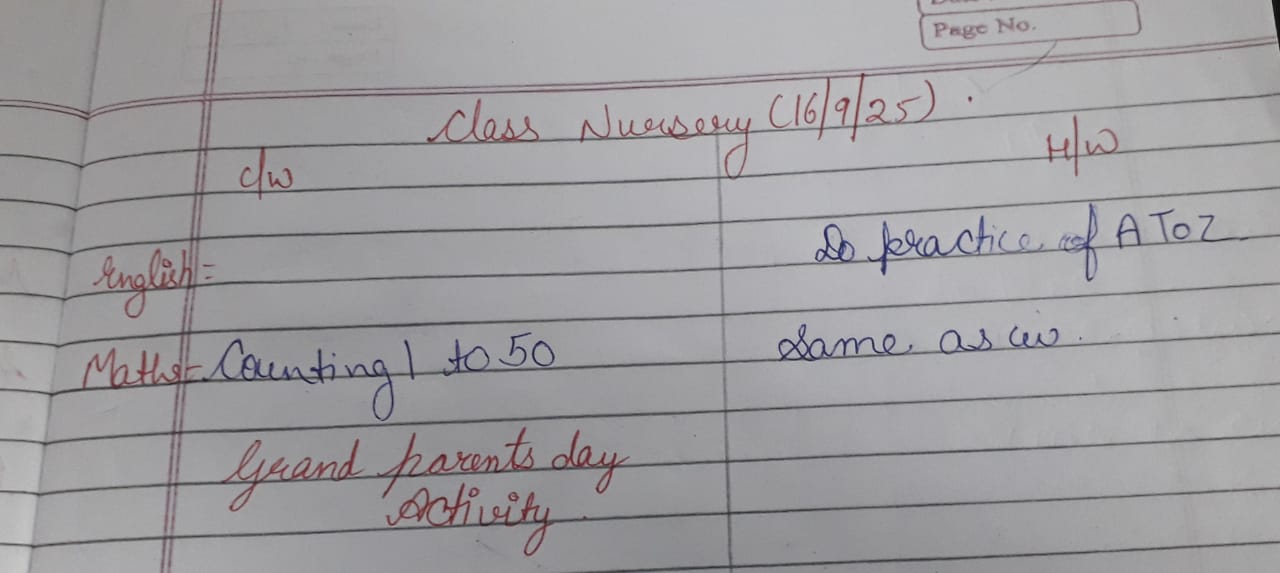 Page No.
Class Nursery (16/9/25).
C/W H/W
English = Do practice of A To Z
Maths = Counting 1 to 50 Same as cw.
Grand parents day
Activity.